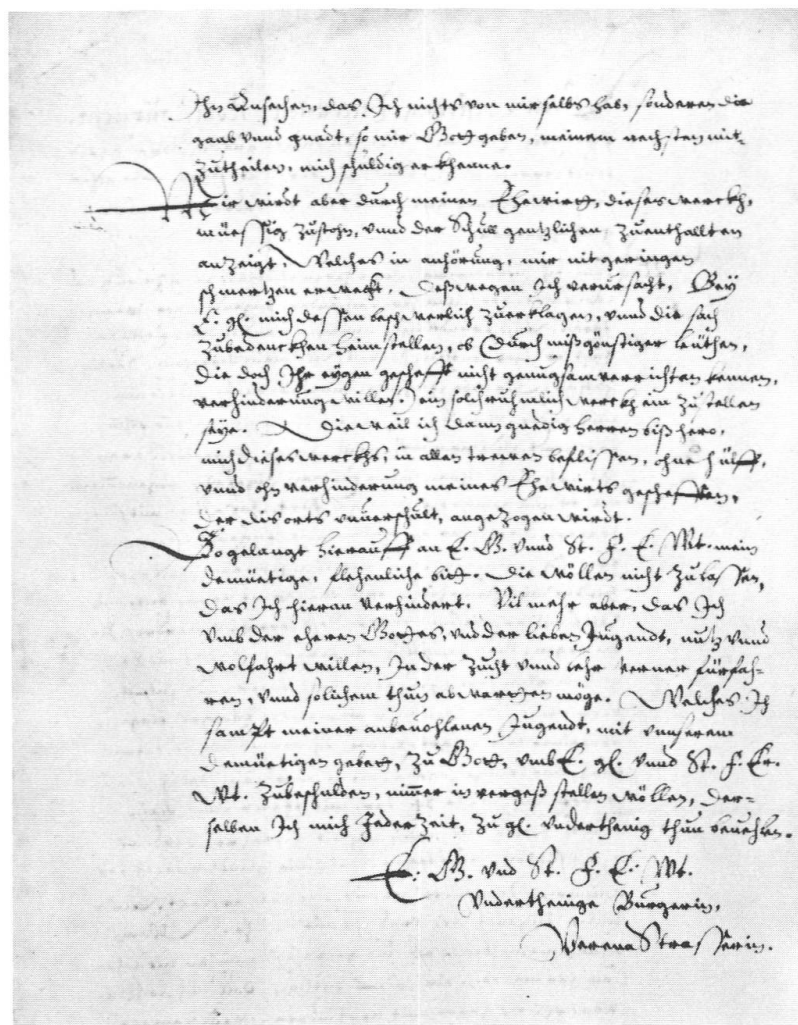 Ihn Ansechen, das Ich nichts von mir selbs hab, sonderen die
gaab vnnd gnadt, so mir Gott geben, meinem nechsten mit-
zutheilen, mich schuldig erkhenne.
Mir wirdt aber durch meinen Ehewirtt, dieses werckh,
müessig zustohn, vnnd der Schuel gentzlichen zuenthallten
anzeigt, Welches in anhörung, mir nit geringen
schmertzen erweckt. Deßwegen Ich verursacht, Bey
E. gl. mich dessen beschwerlich zuerklagen, vnnd die sach
zubedenckhen heimstellen, ob (durch mißgönstiger leüthen,
die doch Ihr eygen geschefft nicht genugsam verrichten kennen,
verhinderung willen) ein solch ruhmlich werckh ein zustellen
seye. Dieweil ich dann gnedig herren biß hero,
mich dieses werckhs, in allen trewen beflissen, ohne hülff,
vnnd ohn verhinderung meines Ehewirts geschefften,
der dis orts vnuerschult, angezogen wirdt.
So gelangt hierauff an E. G. vnnd St. F. E. Wt. mein
demüetige, flehenliche bitt. Die wöllen nicht zulassen,
das Ich hieran verhindert. Vil mehr aber, das Ich
vmb der eheren Gottes, vnd der lieben Jugendt, nutz vnnd
wolfahrt willen, In der zucht vnnd lehr ferner fürfah-
ren, vnnd solichem thun abwartten möge. Welches Ich
sampt meiner anbeuohlenen Jugendt, mit vnnserem
demüetigen gebett, zu Gott, vmb E. gl. vnnd St. F. Er.
Wt. zubeschulden, nimmer in vergeß stellen wöllen, Der-
selben Ich mich Jeder Zeit, zu gl. vnderthenig thun beuehlen.
E. G. vnd St. F. E. Wt.
Vnderthenige Burgerin,
Verena Strasserin.